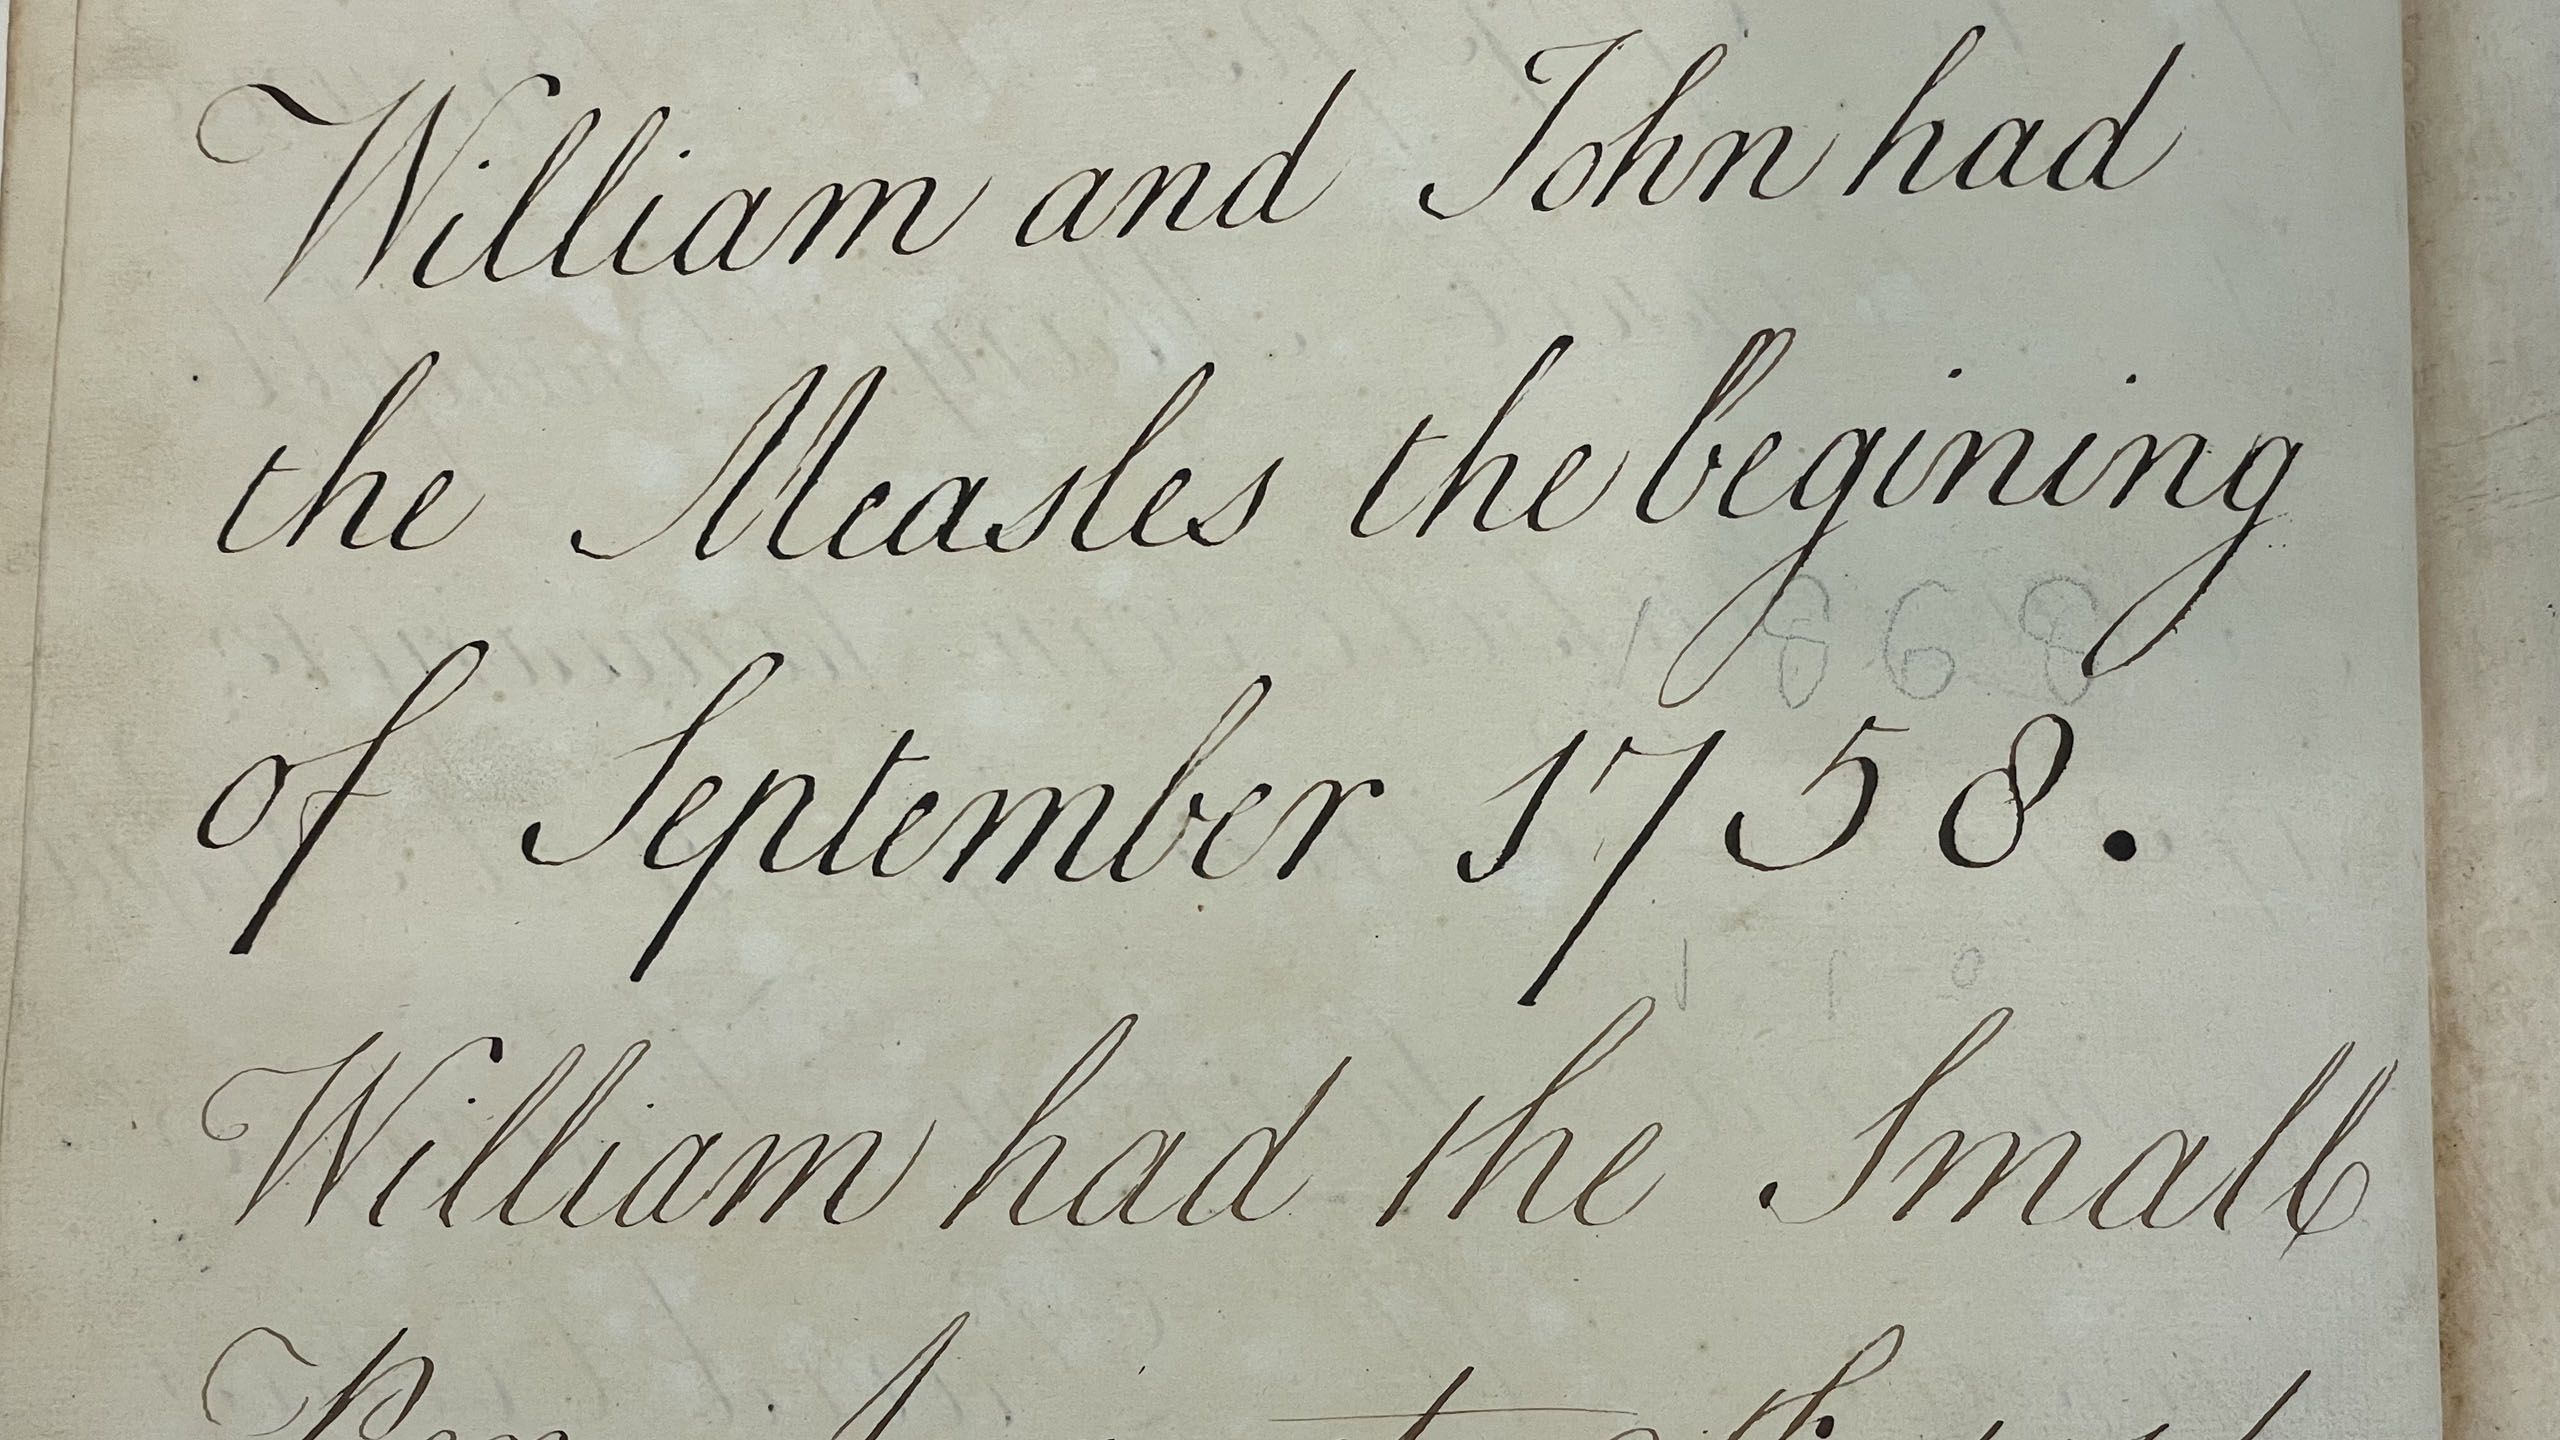 William and John had
the Measles the begining
1868
of September 1758.
William had the Small